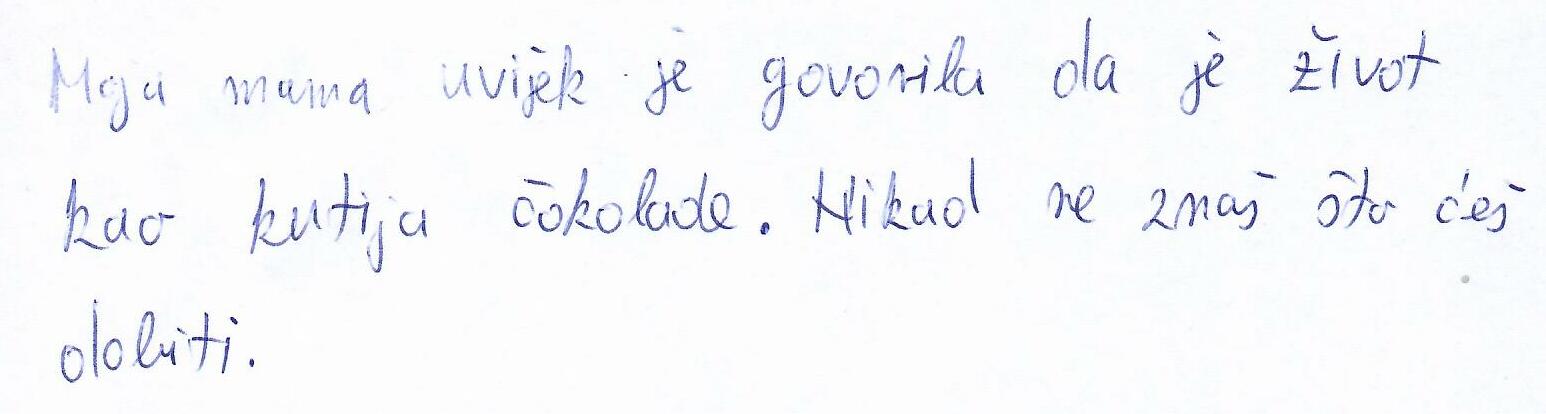 Moja mama uvijek je govorila da je život
kao kutija čokolade. Nikad ne znaš što ćeš
dobiti.